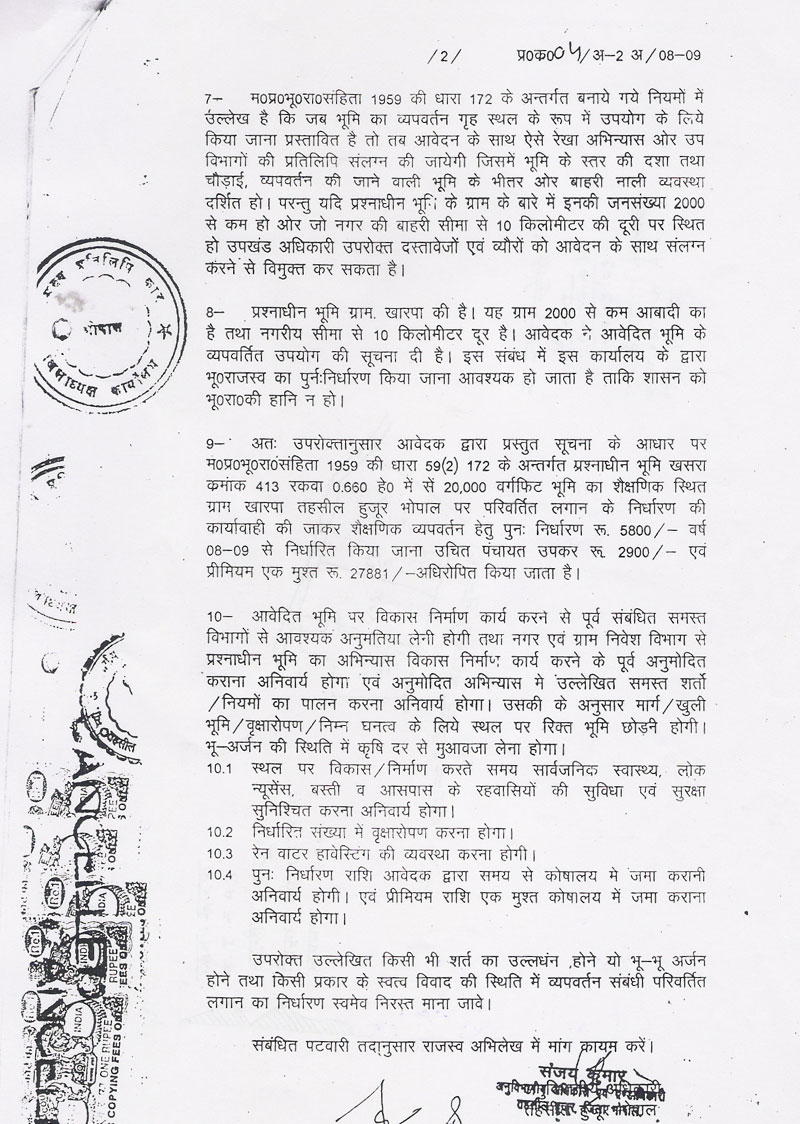 /2/ प्र0क0०५/अ-2 अ/08-09
7- म0प्र0भू0रा0संहिता 1959 की धारा 172 के अन्तर्गत बनाये गये नियमों में
उल्लेख है कि जब भूमि का व्यपवर्तन गृह स्थल के रूप में उपयोग के लिये
किया जाना प्रस्तावित है तो तब आवेदन के साथ ऐसे रेखा अभिन्यास ओर उप
विभागों की प्रतिलिपि संलग्न की जायेगी जिसमें भूमि के स्तर की दशा तथा
चौड़ाई, व्यपवर्तन की जाने वाली भूमि के भीतर ओर बाहरी नाली व्यवस्था
दर्शित हो। परन्तु यदि प्रश्नाधीन भूमि के ग्राम के बारे में इनकी जनसंख्या 2000
से कम हो ओर जो नगर की बाहरी सीमा से 10 किलोमीटर की दूरी पर स्थित
हो उपखंड अधिकारी उपरोक्त दस्तावेजों एवं व्यौरों को आवेदन के साथ संलग्न
करने से विमुक्त कर सकता है।
8- प्रश्नाधीन भूमि ग्राम. खारपा की है। यह ग्राम 2000 से कम आबादी का
है तथा नगरीय सीमा से 10 किलोमीटर दूर है। आवेदक ने आवेदित भूमि के
व्यपवर्तित उपयोग की सूचना दी है। इस संबंध में इस कार्यालय के द्वारा
भू0राजस्व का पुर्न:निर्धारण किया जाना आवश्यक हो जाता है ताकि शासन को
भू0रा0की हानि न हो।
9- अतः उपरोक्तानुसार आवेदक द्वारा प्रस्तुत सूचना के आधार पर
म0प्र0भू0रा0संहिता 1959 की धारा 59(2) 172 के अन्तर्गत प्रश्नाधीन भूमि खसरा
क्रमांक 413 रकवा 0.660 हे0 में सें 20,000 वर्गफिट भूमि का शैक्षणिक स्थित
ग्राम खारपा तहसील हुजूर भोपाल पर परिवर्तित लगान के निर्धारण की
कार्यावाही की जाकर शैक्षणिक व्यपवर्तन हेतु पुनः निर्धारण रू. 5800/- वर्ष
08-09 से निर्धारित किया जाना उचित पंचायत उपकर रू. 2900/- एवं
प्रीमियम एक मुश्त रू. 27881/-अधिरोपित किया जाता है।
10- आवेदित भूमि पर विकास निर्माण कार्य करने से पूर्व संबंधित समस्त
विभागों से आवश्यक अनुमतिया लेनी होगी तथा नगर एवं ग्राम निवेश विभाग से
प्रश्नाधीन भूमि का अभिन्यास विकास निर्माण कार्य करने के पूर्व अनुमोदित
कराना अनिवार्य होगा एवं अनुमोदित अभिन्यास मे उल्लेखित समस्त शर्तो
/नियमों का पालन करना अनिवार्य होगा। उसकी के अनुसार मार्ग/खुली
भूमि/वृक्षारोपण/निम्न घनत्व के लिये स्थल पर रिक्त भूमि छोड़नी होगी।
भू-अर्जन की स्थिति में कृषि दर से मुआवजा लेना होगा।
10.1 स्थल पर विकास/निर्माण करते समय सार्वजनिक स्वास्थ्य, लोक
न्यूसेंस, बस्ती व आसपास के रहवासियों की सुविधा एवं सुरक्षा
सुनिश्चित करना अनिवार्य होगा।
10.2 निर्धारित संख्या में वृक्षारोपण करना होगा।
10.3 रेन वाटर हावेस्टिंग की व्यवस्था करना होगी।
10.4 पुनः निर्धारण राशि आवेदक द्वारा समय से कोषालय मे जमा करानी
अनिवार्य होगी। एवं प्रीमियम राशि एक मुश्त कोषालय में जमा कराना
अनिवार्य होगा।
उपरोक्त उल्लेखित किसी भी शर्त का उल्लधंन ,होने यो भू-भू अर्जन
होने तथा किसी प्रकार के स्वत्व विवाद की स्थिति में व्यपवर्तन संबंधी परिवर्तित
लगान का निर्धारण स्वमेव निरस्त माना जावे।
संबंधित पटवारी तदानुसार राजस्व अभिलेख में मांग कायम करें।
संजय कुमार
भोपाल
प्रतिलिपि
भोपाल
कार्यालय
CANCELLED
CANCELL
INDIA
ONE RUPEE
COPYING FEES ONLY